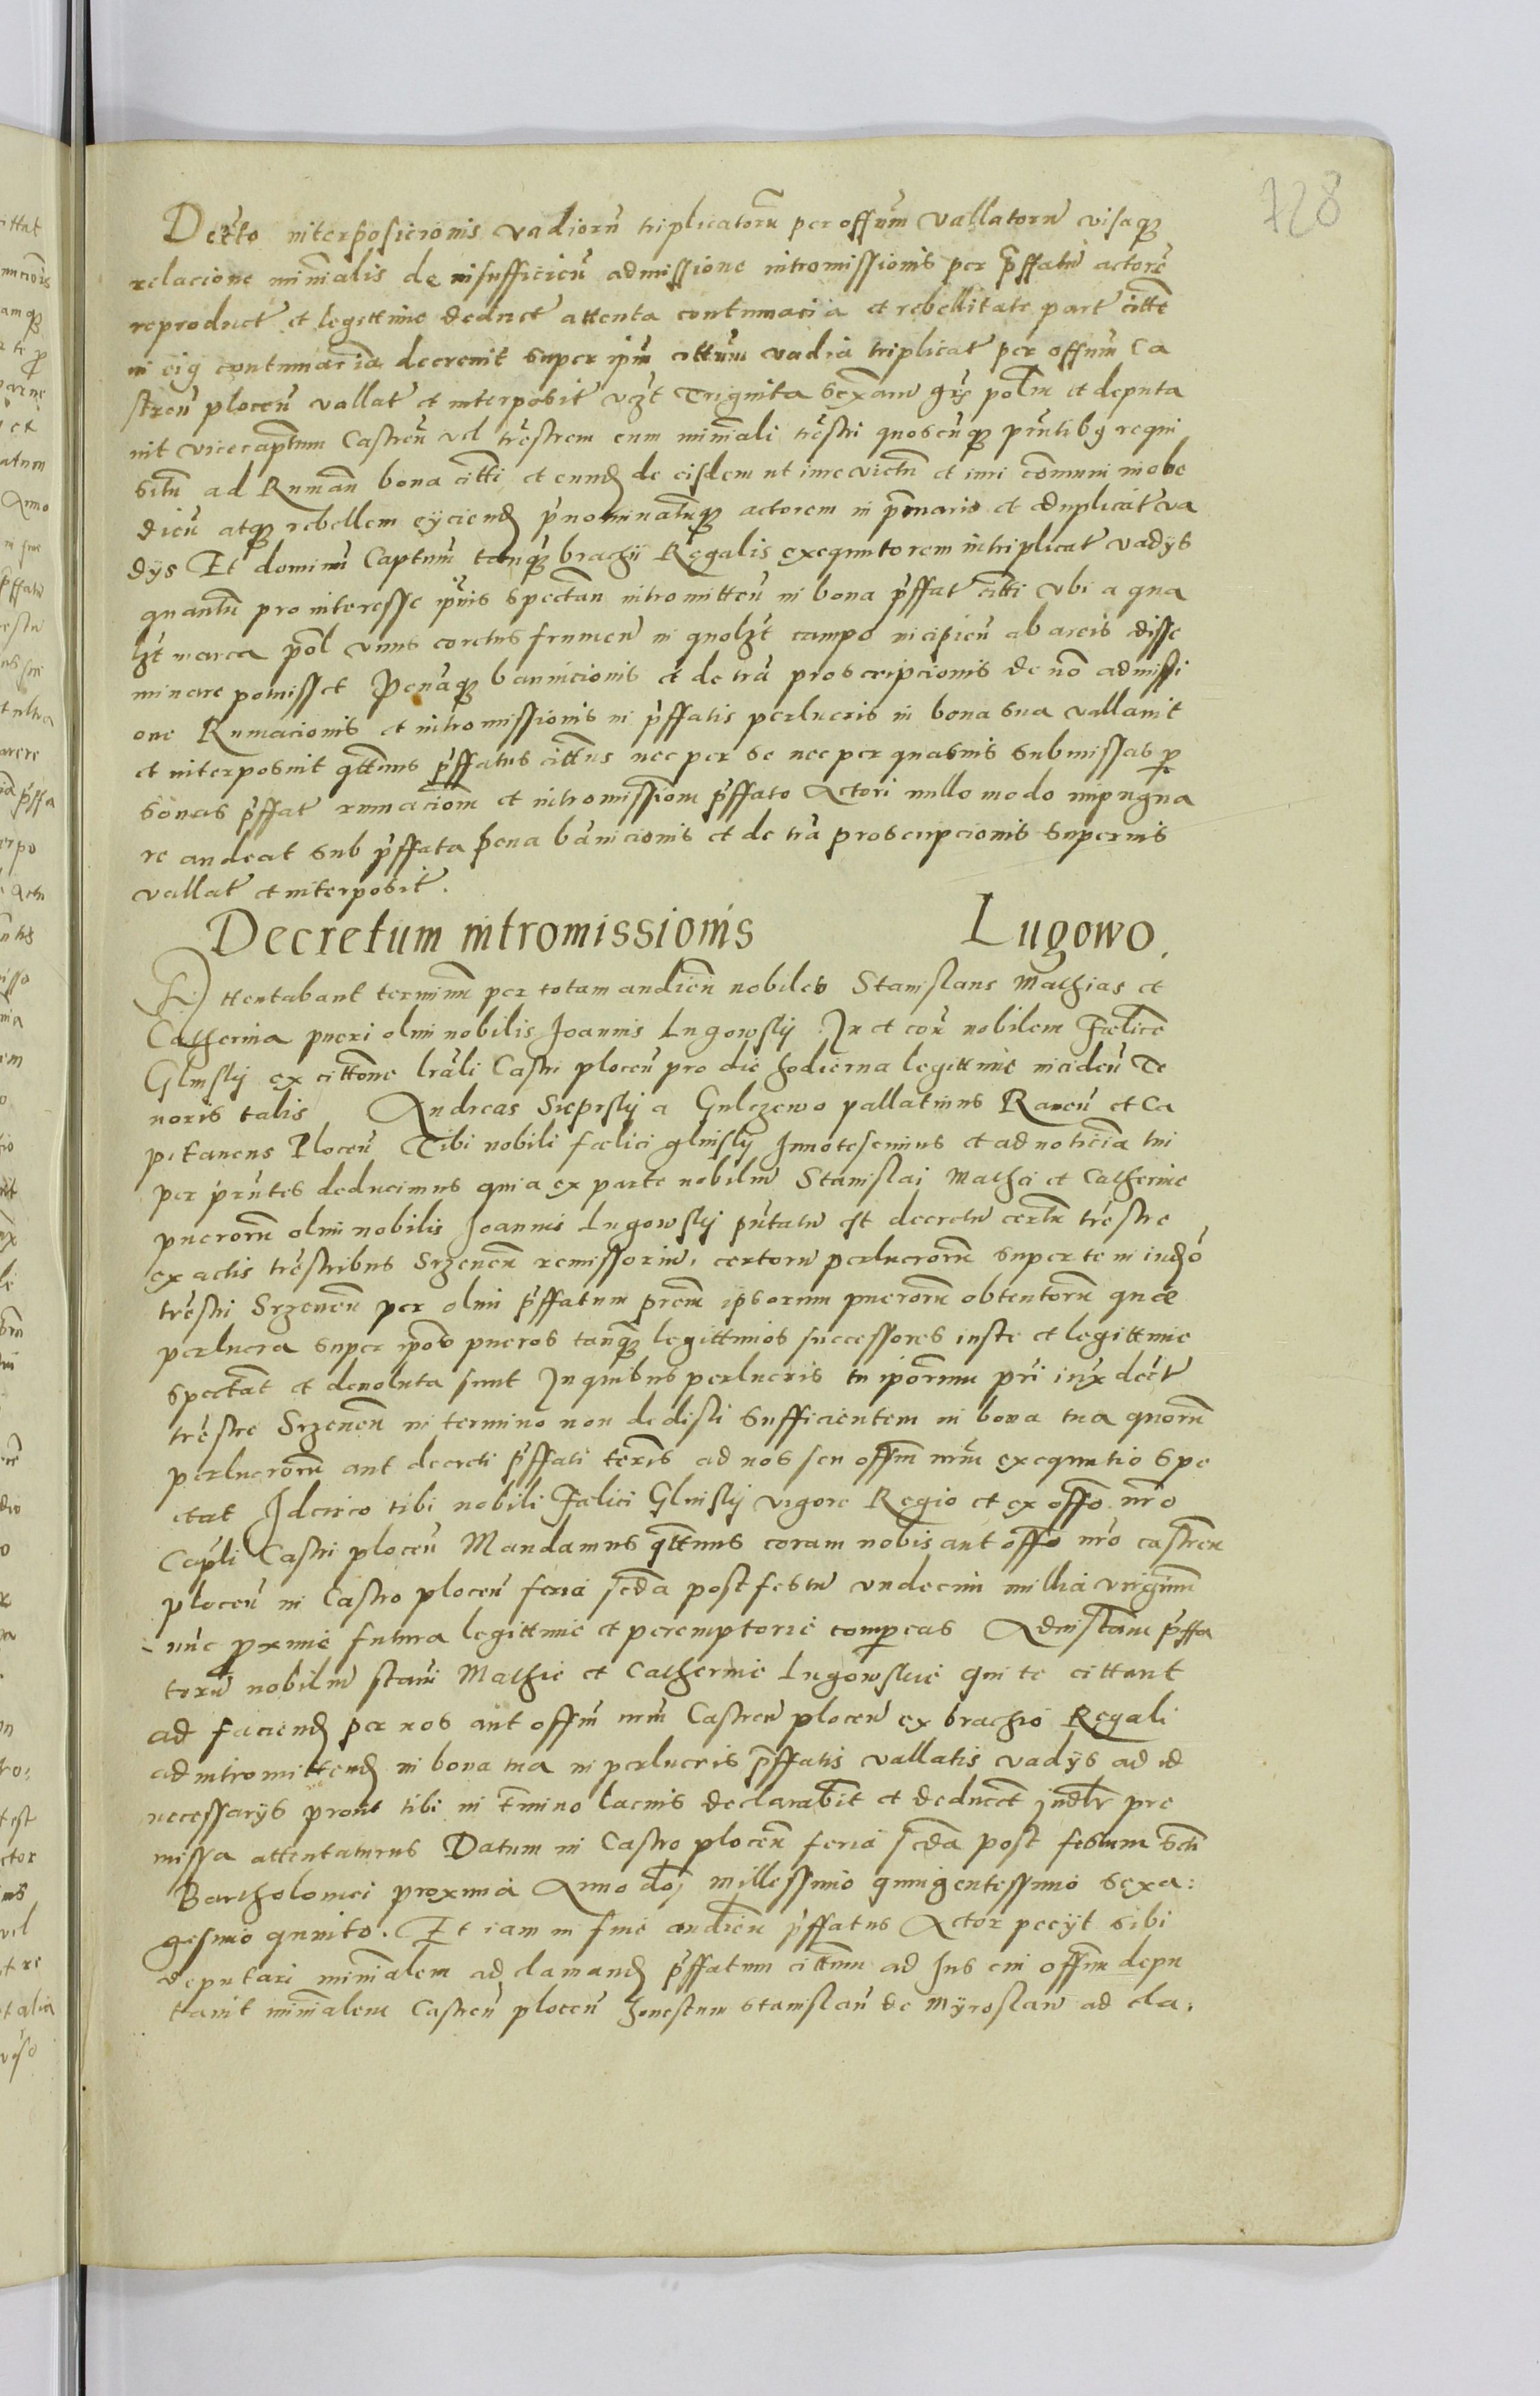 728
Decto interposicionis vadioru triplicatoru per offium vallatoru visaq
relacione minialis de insufficien admissione intromissionis per pffatu actore
reproduct et legittime deduct attenta contumacia et rebellitate part citte
in eig contumacia decrevit super ipm cittum vadia triplicat per offium Ca
stren plocen vallat et interposit vzt Triginta sexam grs polm et deputa
vit vicecaptum Castren vel trestrem cum miniali trestri quoscuq pntibg requi
situ ad Ruman bona citti et eund de eisdem ut iure victu et iuri comuni inobe
dien atq rebellem eyciend pnominatuq actorem in pmario et duplicat va
dys Et dominu Captum tanq brachii Regalis exequutorem in triplicat vadys
quantu pro interesse ipius spectan intromitten in bona pffat citti ubi a qua
lzt marca pol unus coretus frumen in quolzt campo incipien ab areis disse
minare potuisset Penaq bannicionis et de tra proscripcionis de no admissi
one Rumacionis et intromissionis in pffatis perlucris in bona sua vallavit
et interposuit qttnus pffatus cittus nec per se nec per quasvis submissas p
sonas pffat rumaciom et intromissiom pffato Actori nullo modo impugna
re audeat sub pffata pena banicionis et de tra proscripcionis superius
vallat et interposit.
Decretum intromissionis Lugowo.
Attentabant terminu per totam audien nobiles Stanislaus Mathias et
Catherina pueri olim nobilis Joannis Lugowsky In et con nobilem Fœlice
Glinsky ex cittone lrali Castri plocen pro die hodierna legittime inciden Te
noris talis Andreas Sieprsky a Gulczewo pallatinus Raven et Ca
pitaneus Plocen Tibi nobili fœlici glinsky Innotescimus et ad noticia tui
per pntes deducimus quia ex parte nobiliu Stanislai Mathei et Catherine
pueroru olim nobilis Joannis Lugowsky pntatu est decretu certu trestre
ex actis trestribus Srzenen remissoriu, certoru perlucroru super te in iudo
trestri Srzenen per olim pffatum prem ipsorum pueroru obtentoru quæ
perlucra super ipos pueros tanq legittimos successores iuste et legittime
spectat et devoluta sunt In quibus perlucris tu iporum pri iux dect
trestre Srzenen in termino non dedisti sufficientem in bona tua quoru
perlucroru aut decreti pffati teris ad nos seu offm nrm exequutio spe
ctat Idcirco tibi nobili Fælici Glinsky vigore Regio et ex offo nro
Capli Castri plocen Mandamus qttnus coram nobis aut offo nro castren
plocen in Castro plocen feria scda post festu undecim millia virginu
nuc proxime futura legittime et peremptorie compeas Ad instam pffa
toru nobiliu stani Mathie et Catherine Lugowskie qui te cittant
ad faciend per nos aut offm nrm Castren plocen ex brachio Regali
ad intromittend in bona tua in perlucris pffatis vallatis vadys ad id
necessarys prout tibi in tmino lacius declarabit et deducet judlr pre
missa attentaturus Datum in Castro plocen feria scda post festum scti
Bartholomei proxima Anno doj millessimo quingentessimo sexa:
gesimo quinto. Et iam in fine audien pffatus Actor pecyt sibi
deputari minialem ad clamand pffatum cittum ad Ius cui offm depu
tavit minialem Castren plocen honestum Stanislau de Myroslaw ad cla.